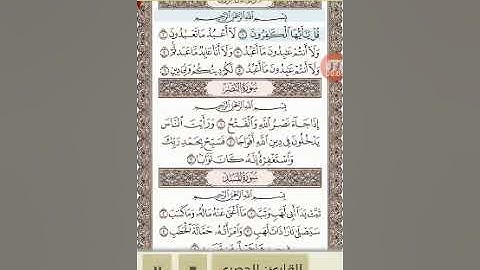 بِسْمِ اللَّهِ الرَّحْمَٰنِ الرَّحِيمِ
قُلْ يَا أَيُّهَا الْكَافِرُونَ ١ لَا أَعْبُدُ مَا تَعْبُدُونَ ٢
وَلَا أَنتُمْ عَابِدُونَ مَا أَعْبُدُ ٣ وَلَا أَنَا عَابِدٌ مَّا عَبَدتُّمْ ٤
وَلَا أَنتُمْ عَابِدُونَ مَا أَعْبُدُ ٥ لَكُمْ دِينُكُمْ وَلِيَ دِينِ ٦
سُورَةُ النَّصْرِ
بِسْمِ اللَّهِ الرَّحْمَٰنِ الرَّحِيمِ
إِذَا جَاءَ نَصْرُ اللَّهِ وَالْفَتْحُ ١ وَرَأَيْتَ النَّاسَ
يَدْخُلُونَ فِي دِينِ اللَّهِ أَفْوَاجًا ٢ فَسَبِّحْ بِحَمْدِ رَبِّكَ
وَاسْتَغْفِرْهُ إِنَّهُ كَانَ تَوَّابًا ٣
سُورَةُ الْمَسَدِ
بِسْمِ اللَّهِ الرَّحْمَٰنِ الرَّحِيمِ
تَبَّتْ يَدَا أَبِي لَهَبٍ وَتَبَّ ١ مَا أَغْنَىٰ عَنْهُ مَالُهُ وَمَا كَسَبَ ٢
سَيَصْلَىٰ نَارًا ذَاتَ لَهَبٍ ٣ وَامْرَأَتُهُ حَمَّالَةَ الْحَطَبِ ٤